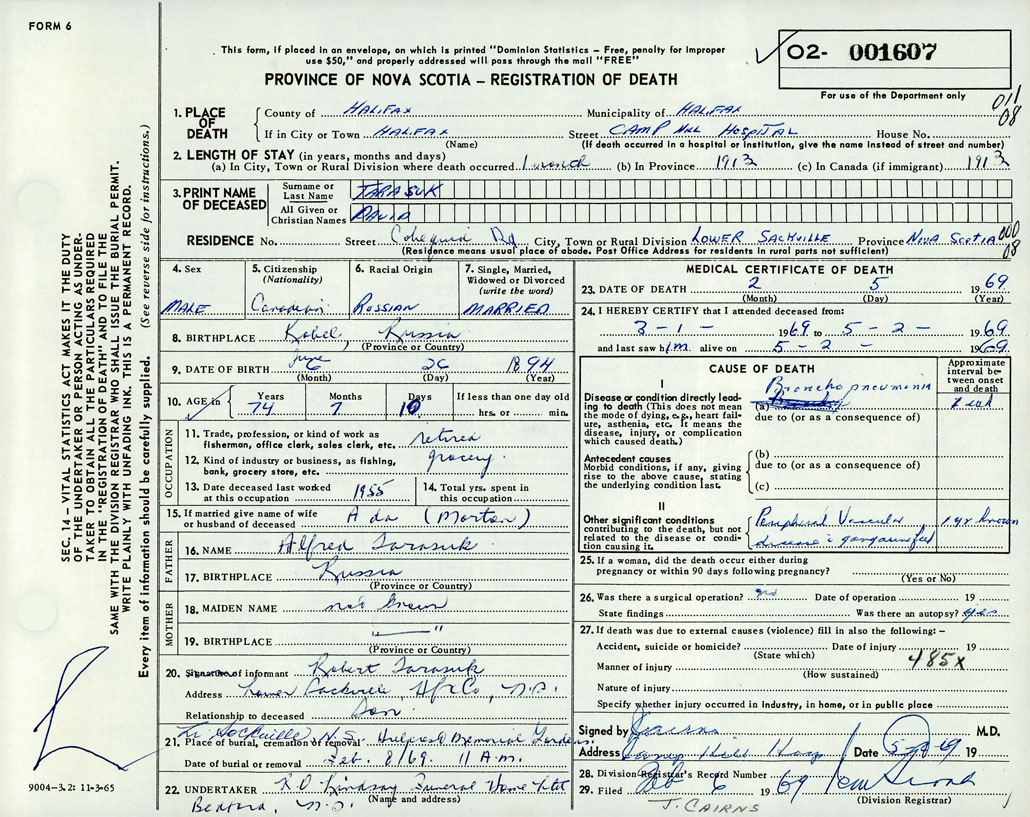 FORM 6
This form, if placed in an envelope, on which is printed "Dominion Statistics – Free, penalty for improper
use $50," and properly addressed will pass through the mail "FREE"
PROVINCE OF NOVA SCOTIA – REGISTRATION OF DEATH
O2- 001607
For use of the Department only
011
08
1. PLACE OF DEATH
County of HALIFAX Municipality of HALIFAX
If in City or Town HALIFAX Street CAMP HILL HOSPITAL House No.
(Name) (If death occurred in a hospital or institution, give the name instead of street and number)
2. LENGTH OF STAY (in years, months and days)
(a) In City, Town or Rural Division where death occurred 1 month (b) In Province 1913 (c) In Canada (if immigrant) 1913
3. PRINT NAME OF DECEASED
Surname or Last Name TARASUK
All Given or Christian Names DAVID
RESIDENCE No. Street Cobequid Rd City, Town or Rural Division LOWER SACKVILLE Province NOVA SCOTIA
000
08
(Residence means usual place of abode. Post Office Address for residents in rural parts not sufficient)
4. Sex MALE
5. Citizenship (Nationality) Canadian
6. Racial Origin RUSSIAN
7. Single, Married, Widowed or Divorced (write the word) MARRIED
8. BIRTHPLACE Kobel, Russia
(Province or Country)
9. DATE OF BIRTH June 6 26 1894
(Month) (Day) (Year)
10. AGE in Years 74 Months 7 Days 10 If less than one day old hrs. or min.
OCCUPATION
11. Trade, profession, or kind of work as fisherman, office clerk, sales clerk, etc. retired
12. Kind of industry or business, as fishing, bank, grocery store, etc. grocery
13. Date deceased last worked at this occupation 1955
14. Total yrs. spent in this occupation
15. If married give name of wife or husband of deceased Ada (Morton)
FATHER
16. NAME Alfred Tarasuk
17. BIRTHPLACE Russia
(Province or Country)
MOTHER
18. MAIDEN NAME not known
19. BIRTHPLACE — "
(Province or Country)
20. Signature of informant Robert Tarasuk
Address Lower Sackville, Hfx Co., N.S.
Relationship to deceased Son
Lr. Sackville, N.S.
21. Place of burial, cremation or removal Hillcrest Memorial Gardens
Date of burial or removal Feb. 8/69. 11 A.M.
22. UNDERTAKER R.D. Lindsay Funeral Home
(Name and address)
Bedford, N.S.
9004-3.2: 11-3-65
SEC. 14 – VITAL STATISTICS ACT MAKES IT THE DUTY
OF THE UNDERTAKER OR PERSON ACTING AS UNDER-
TAKER TO OBTAIN ALL THE PARTICULARS REQUIRED
IN THE "REGISTRATION OF DEATH" AND TO FILE THE
SAME WITH THE DIVISION REGISTRAR WHO SHALL ISSUE THE BURIAL PERMIT.
WRITE PLAINLY WITH UNFADING INK. THIS IS A PERMANENT RECORD.
Every item of information should be carefully supplied. (See reverse side for instructions.)
MEDICAL CERTIFICATE OF DEATH
23. DATE OF DEATH 2 5 1969
(Month) (Day) (Year)
24. I HEREBY CERTIFY that I attended deceased from:
3 - 1 - 1969 to 5 - 2 - 1969
and last saw him alive on 5 - 2 - 1969
CAUSE OF DEATH
Approximate interval between onset and death
I
Disease or condition directly leading to death (This does not mean the mode of dying, e.g., heart failure, asthenia, etc. It means the disease, injury, or complication which caused death.)
(a) Bronchopneumonia
due to (or as a consequence of)
Antecedent causes
Morbid conditions, if any, giving rise to the above cause, stating the underlying condition last.
(b)
due to (or as a consequence of)
(c)
II
Other significant conditions contributing to the death, but not related to the disease or condition causing it.
Peripheral Vascular
disease
25. If a woman, did the death occur either during pregnancy or within 90 days following pregnancy?
(Yes or No)
26. Was there a surgical operation? Date of operation 19
State findings Was there an autopsy? yes
27. If death was due to external causes (violence) fill in also the following: –
Accident, suicide or homicide? Date of injury 19
(State which)
485X
Manner of injury
(How sustained)
Nature of injury
Specify whether injury occurred in industry, in home, or in public place
Signed by M.D.
Address Camp Hill Hosp Date 5-2-69 19
28. Division Registrar's Record Number
29. Filed Feb 6 1969
(Division Registrar)
J. CAIRNS